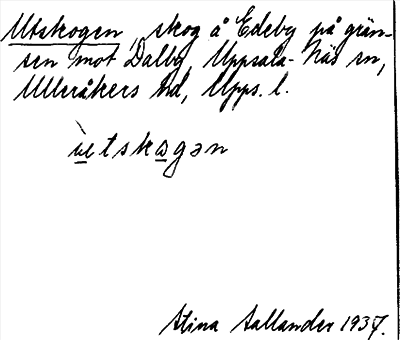 Utskogen, skog å Edeby på grän-
sen mot Dalby, Uppsala-Näs sn,
Ulleråkers hd, Upps. l.
ùetskagən
Stina Sallander 1937.